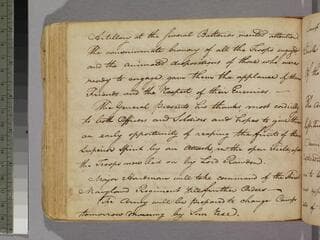 Artillery at the several Batteries merited attention
the uncommon bravery of all the Troops engaged
and the animated dispositions of those who were
ready to engage gave them the applause of their
Friends and the Respect of their Enemies —
The General presents his thanks most cordially
to both Officers and Soldiers and hopes to give them
an early opportunity of reaping the fruits of their
Superior Spirit by an attack in the open field upon
the Troops now led on by Lord Rawdon.
Major Hardman will take command of the
Maryland Regiment till further Orders —
The Army will be prepared to change Camp
tomorrow Morning by Sun rise.